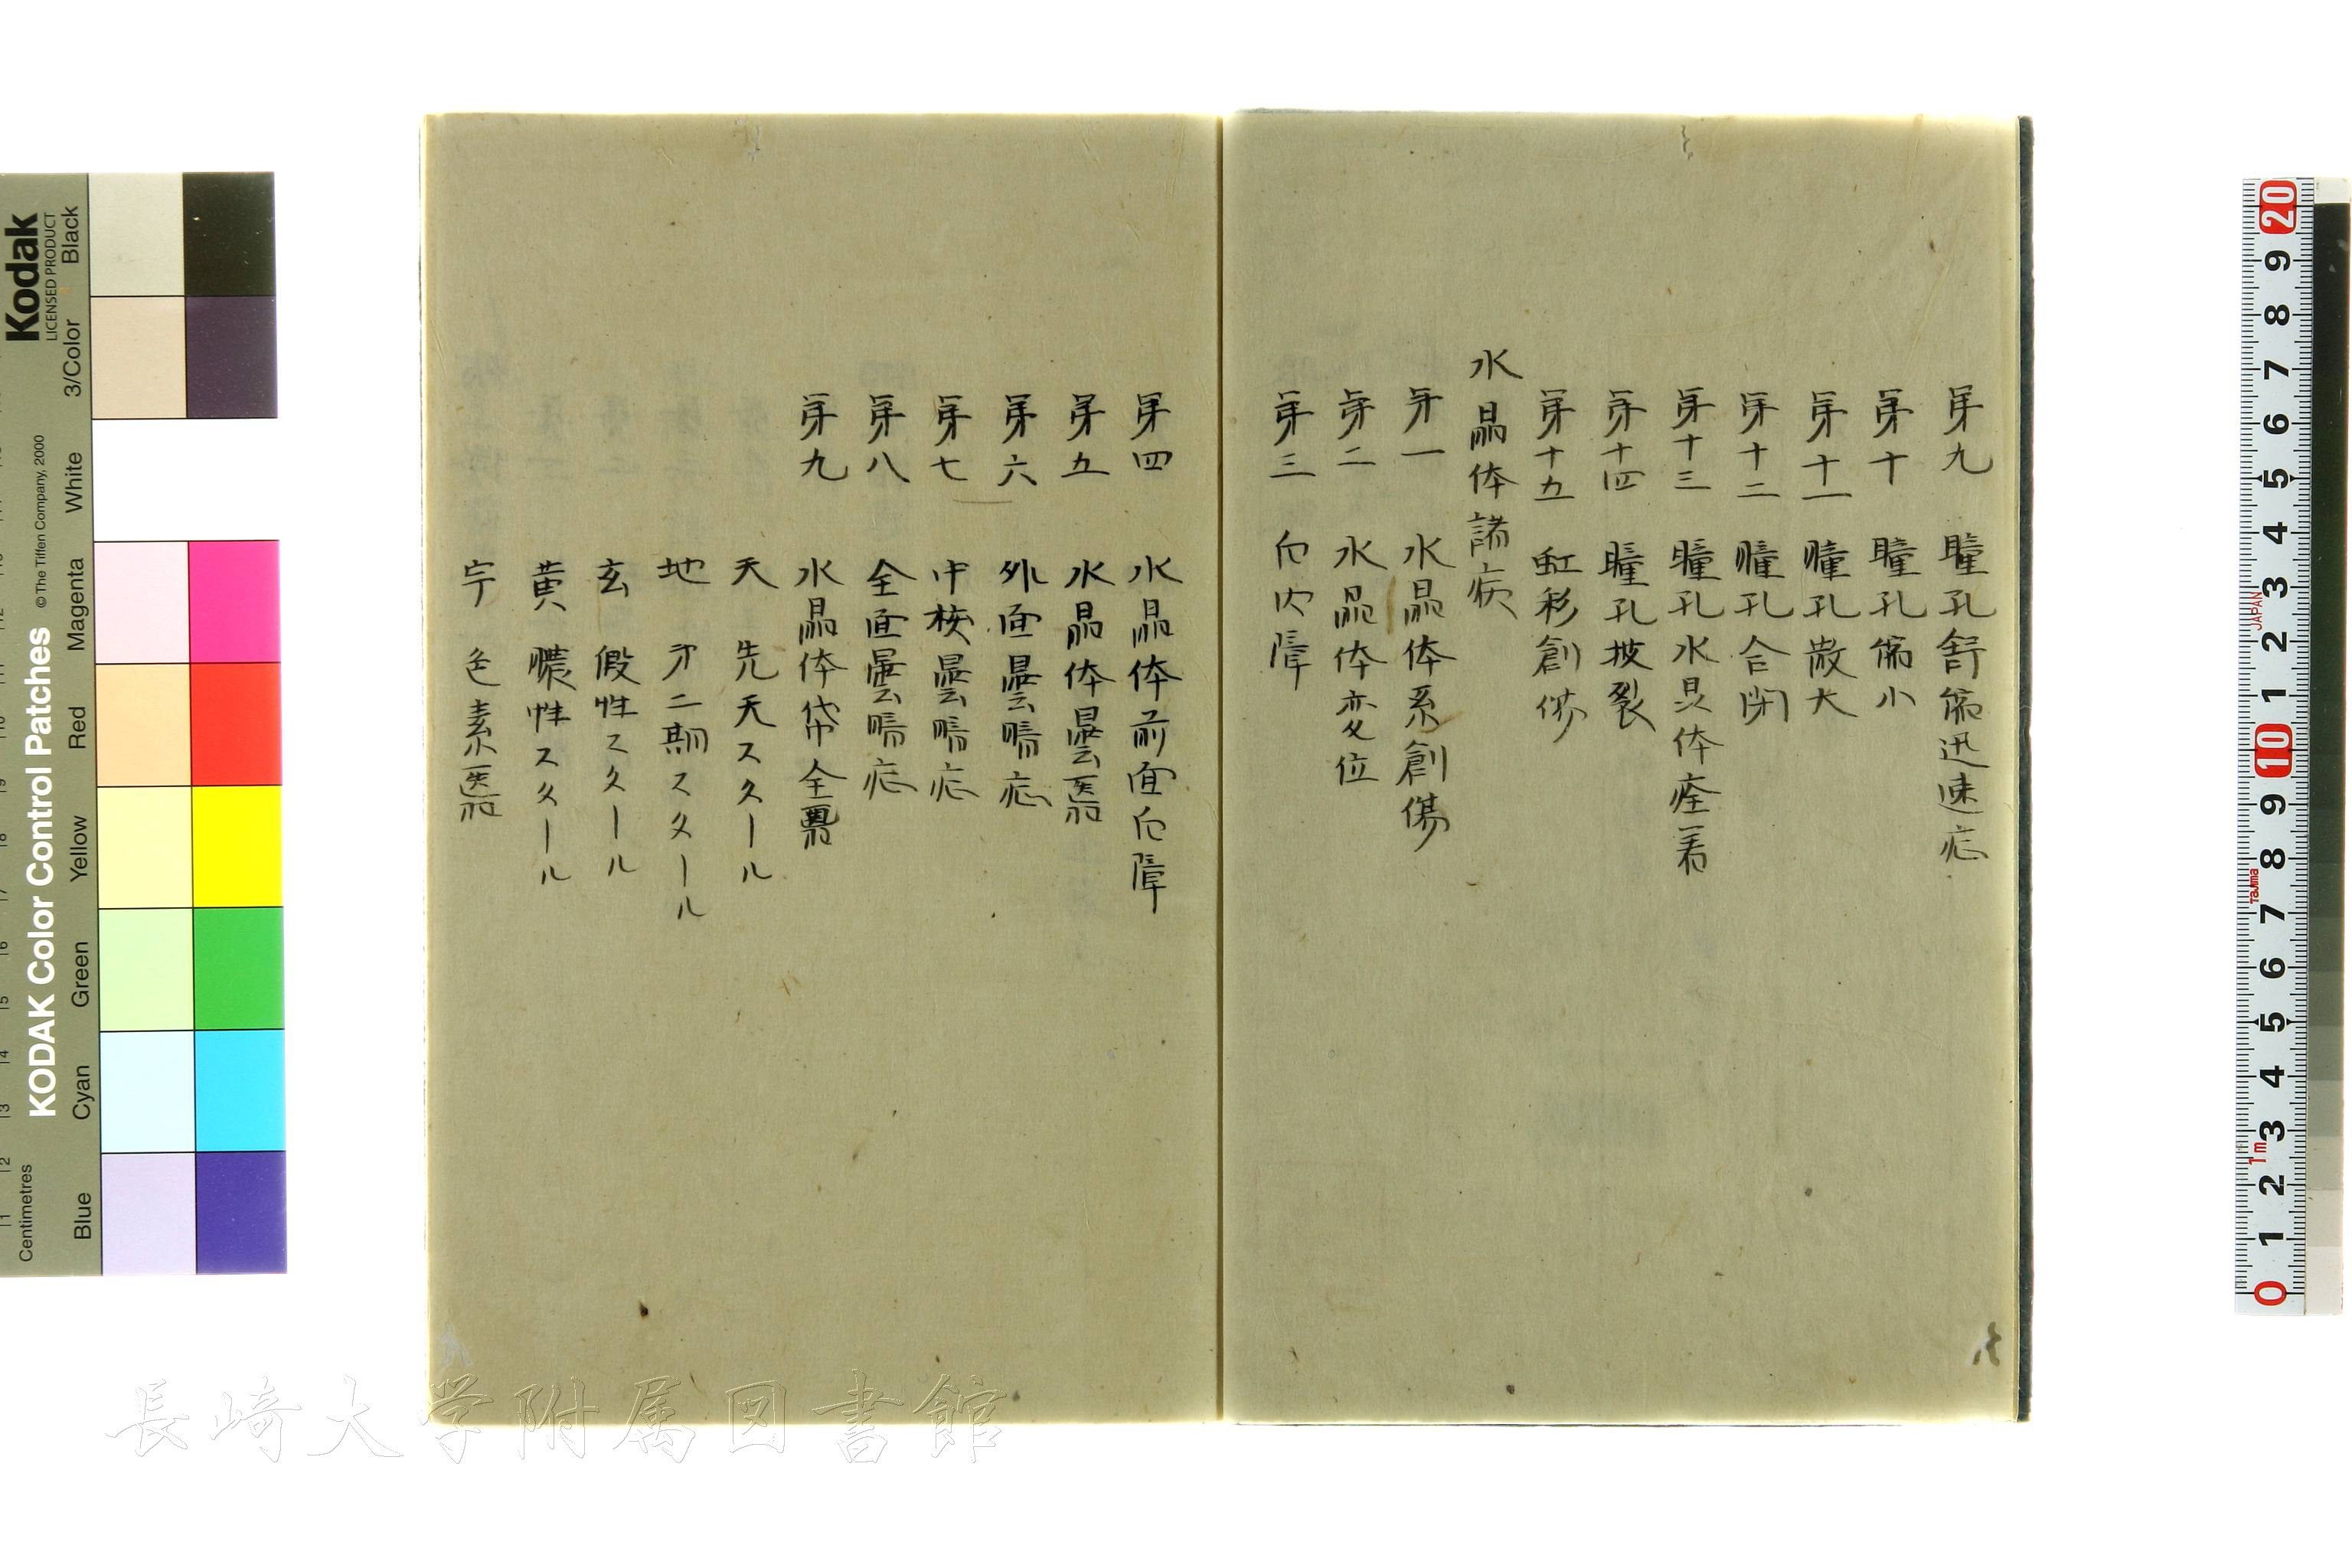 第九 瞳孔舒縮迅速症
第十 瞳孔縮小
第十一 瞳孔散大
第十二 瞳孔合閉
第十三 瞳孔水晶体痊着
第十四 瞳孔披裂
第十五 虹彩創傷
水晶体諸病
第一 水晶体系創傷
第二 水晶体変位
第三 白内障
第四 水晶体前面白障
第五 水晶体曇翳
第六 外面曇暘症
第七 中核曇暘症
第八 全面曇暘症
第九 水晶体帒全翳
天 先天スタール
地 第二期スタール
玄 假性スタール
黄 膿性スタール
宇 色素翳
長崎大学附属図書館
Kodak
LICENSED PRODUCT
KODAK Color Control Patches
© The Tiffen Company, 2000
Centimetres
Blue Cyan Green Yellow Red Magenta White 3/Color Black
11 12 13 14 15 16 17 18 19
0 1 2 3 4 5 6 7 8 9 10 1 2 3 4 5 6 7 8 9 20
1m
Tajima
JAPAN